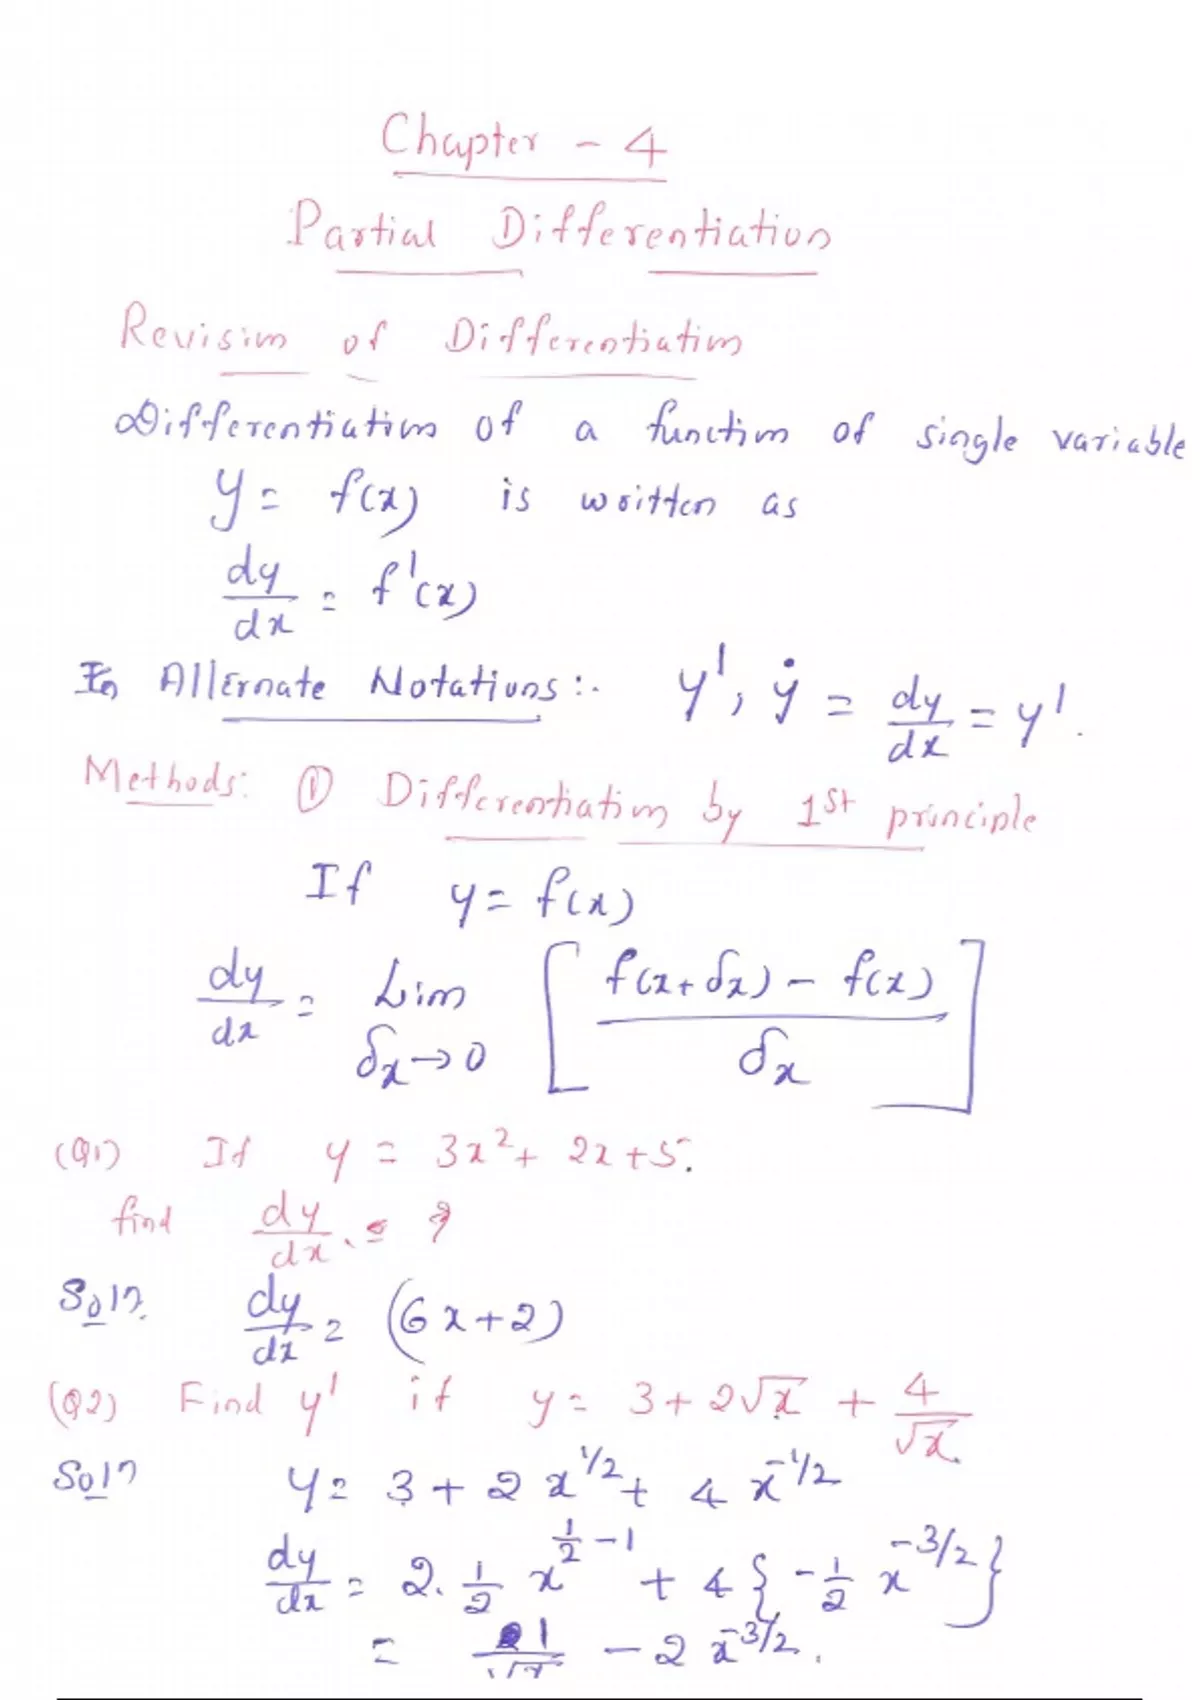 Chapter - 4
Partial Differentiation
Revision of Differentiation
Differentiation of a function of single variable
y = f(x) is written as
dy/dx = f'(x)
In Alternate Notations :- y', ẏ = dy/dx = y'.
Methods: ① Differentiation by 1st principle
If y = f(x)
dy/dx = Lim δx→0 [ (f(x+δx) - f(x)) / δx ]
(Q1) If y = 3x² + 2x + 5.
find dy/dx = ?
Soln. dy/dx = (6x+2)
(Q2) Find y' if y = 3 + 2√x + 4/√x.
Soln y = 3 + 2 x^(1/2) + 4 x^(-1/2)
dy/dx = 2. 1/2 x^(1/2 - 1) + 4 { -1/2 x^(-3/2) }
= 1/√x - 2 x^(-3/2).